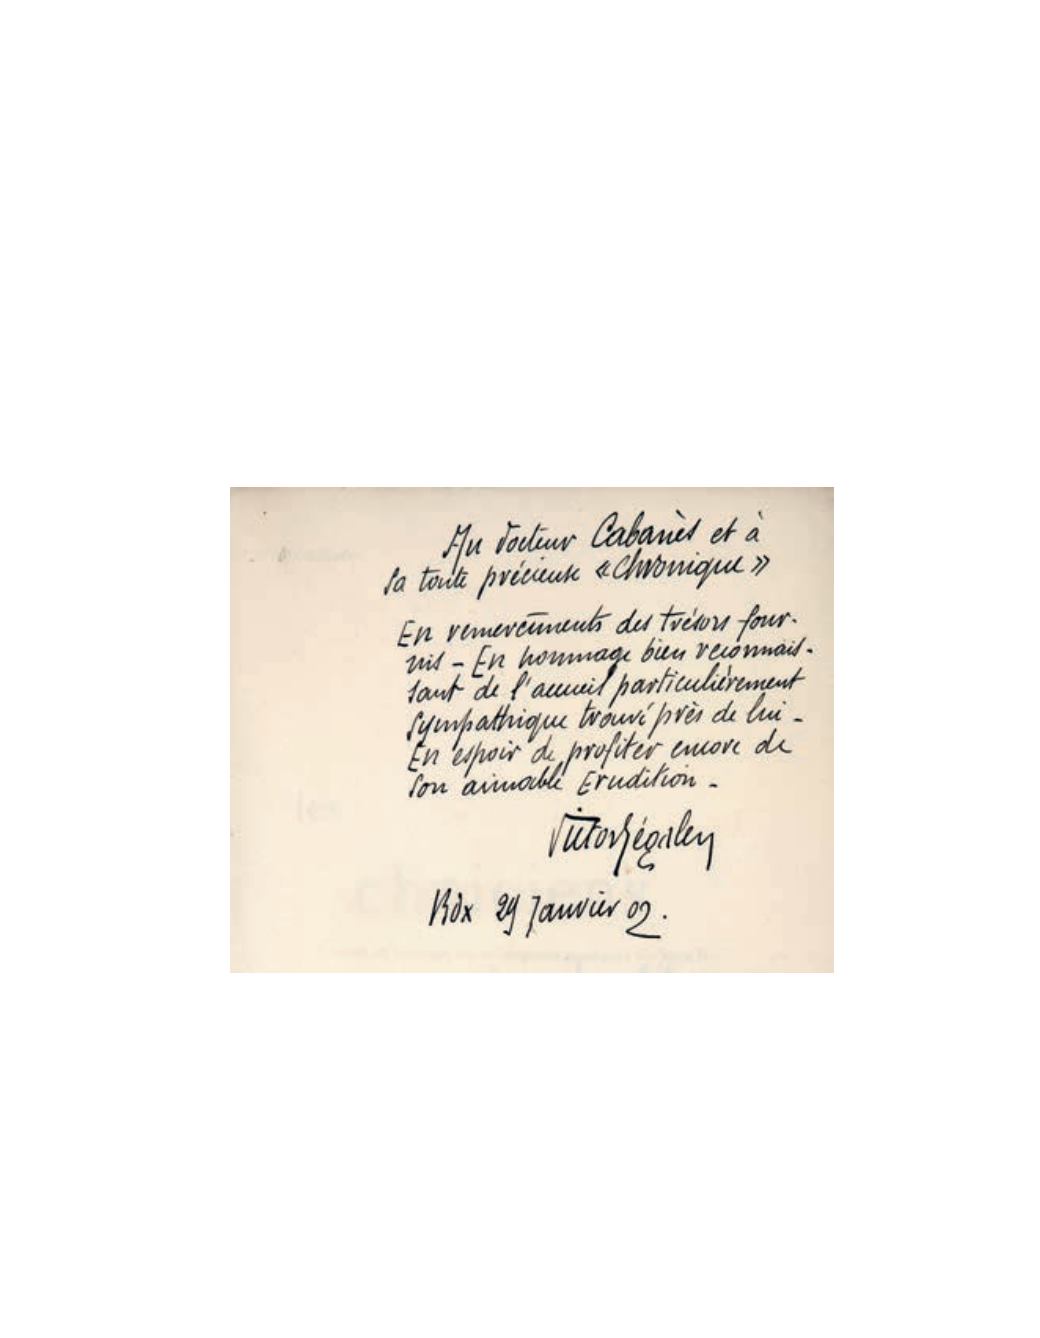 Au docteur Cabanès et à
sa toute précieuse «Chronique»
En remerciements des trésors four-
nis - En hommage bien reconnais-
sant de l'accueil particulièrement
sympathique trouvé près de lui -
En espoir de profiter encore de
son aimable Erudition -
Victor Ségalen
Bdx 29 Janvier 02.